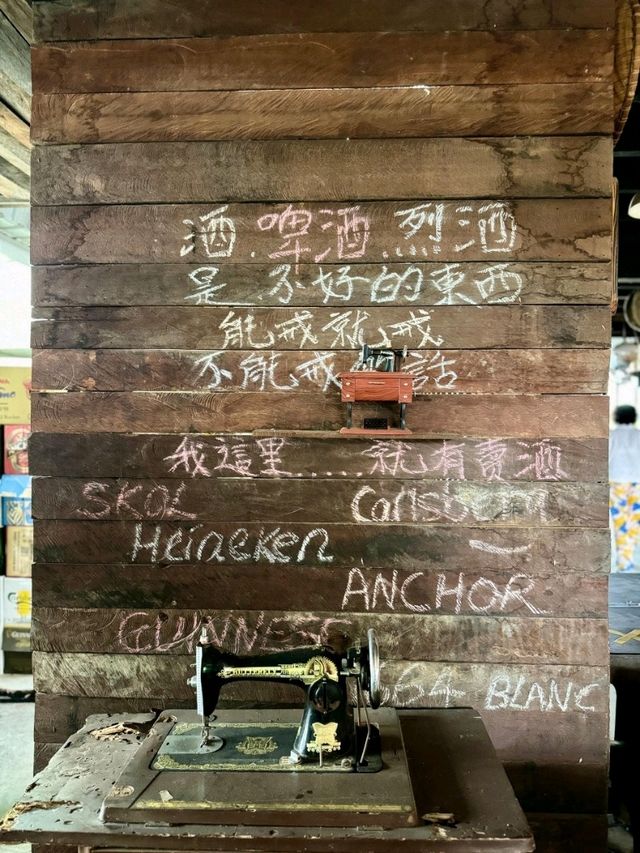 酒.啤酒.烈酒
是不好的東西
能戒就戒
不能戒 話
我這里.....就有賣酒
SKOL Carlsberg
Heineken
ANCHOR
GUINNESS
64 BLANC